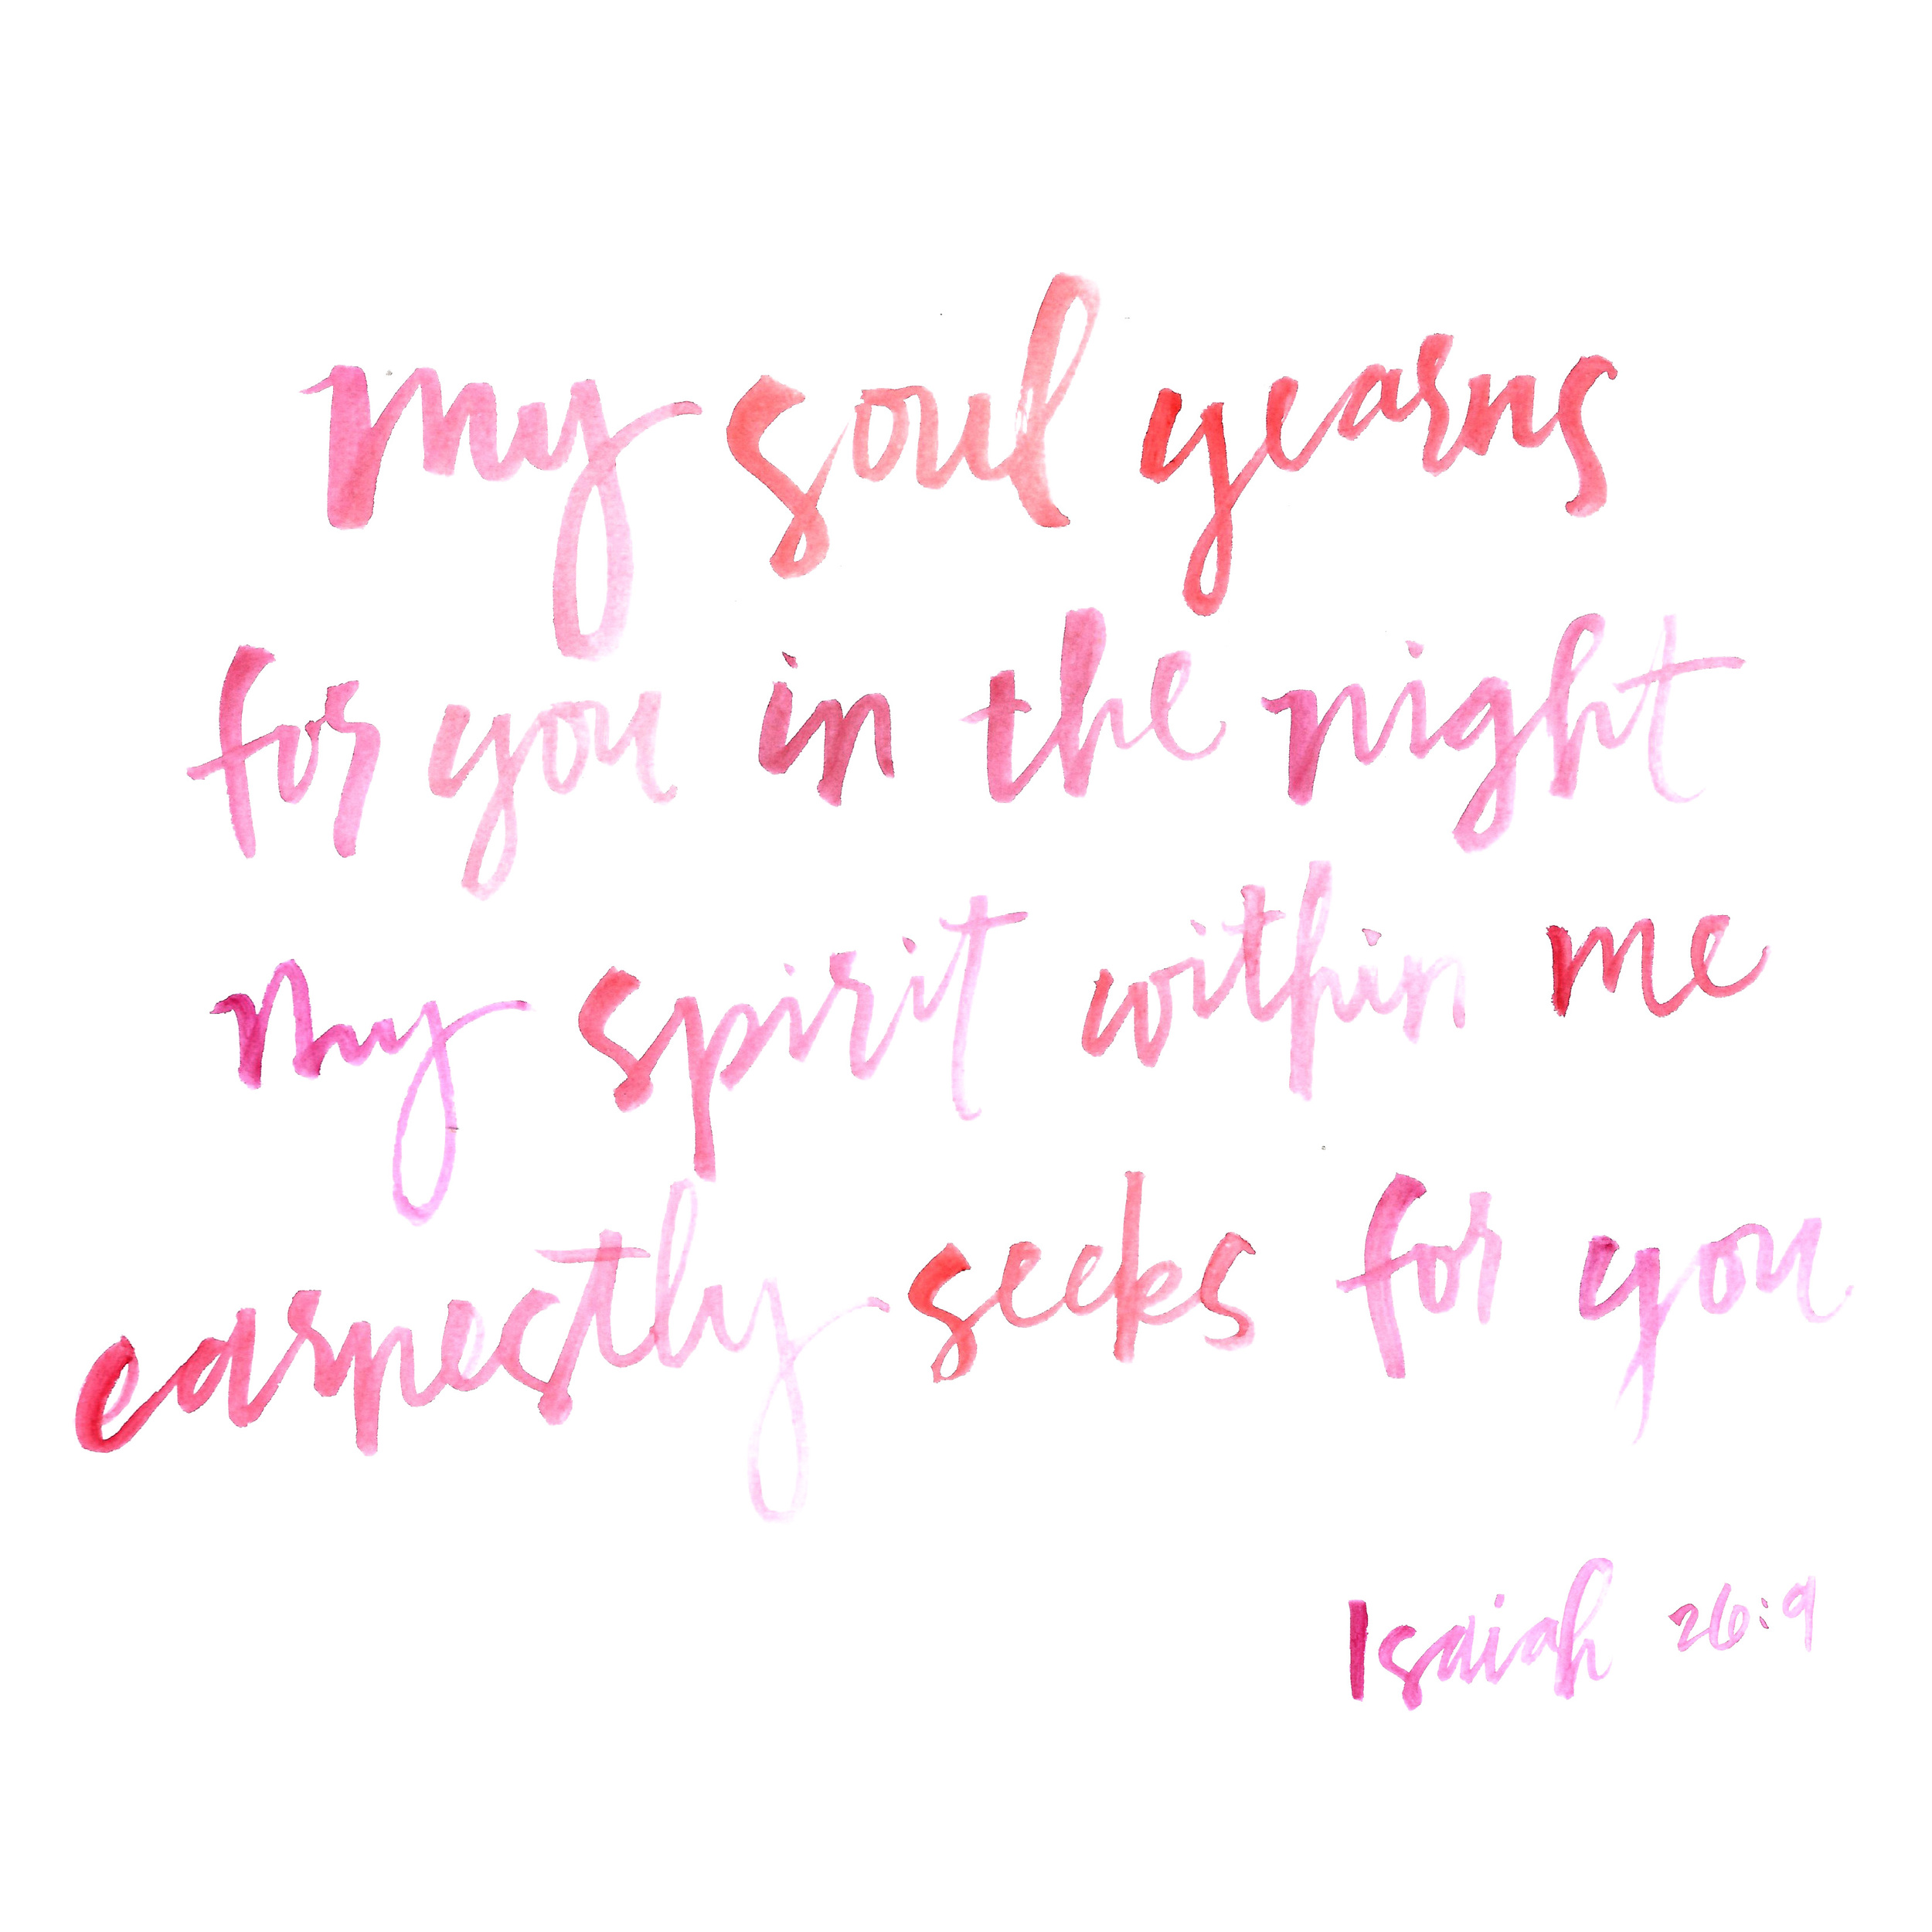 my soul yearns
for you in the night
my spirit within me
earnestly seeks for you
Isaiah 26:9